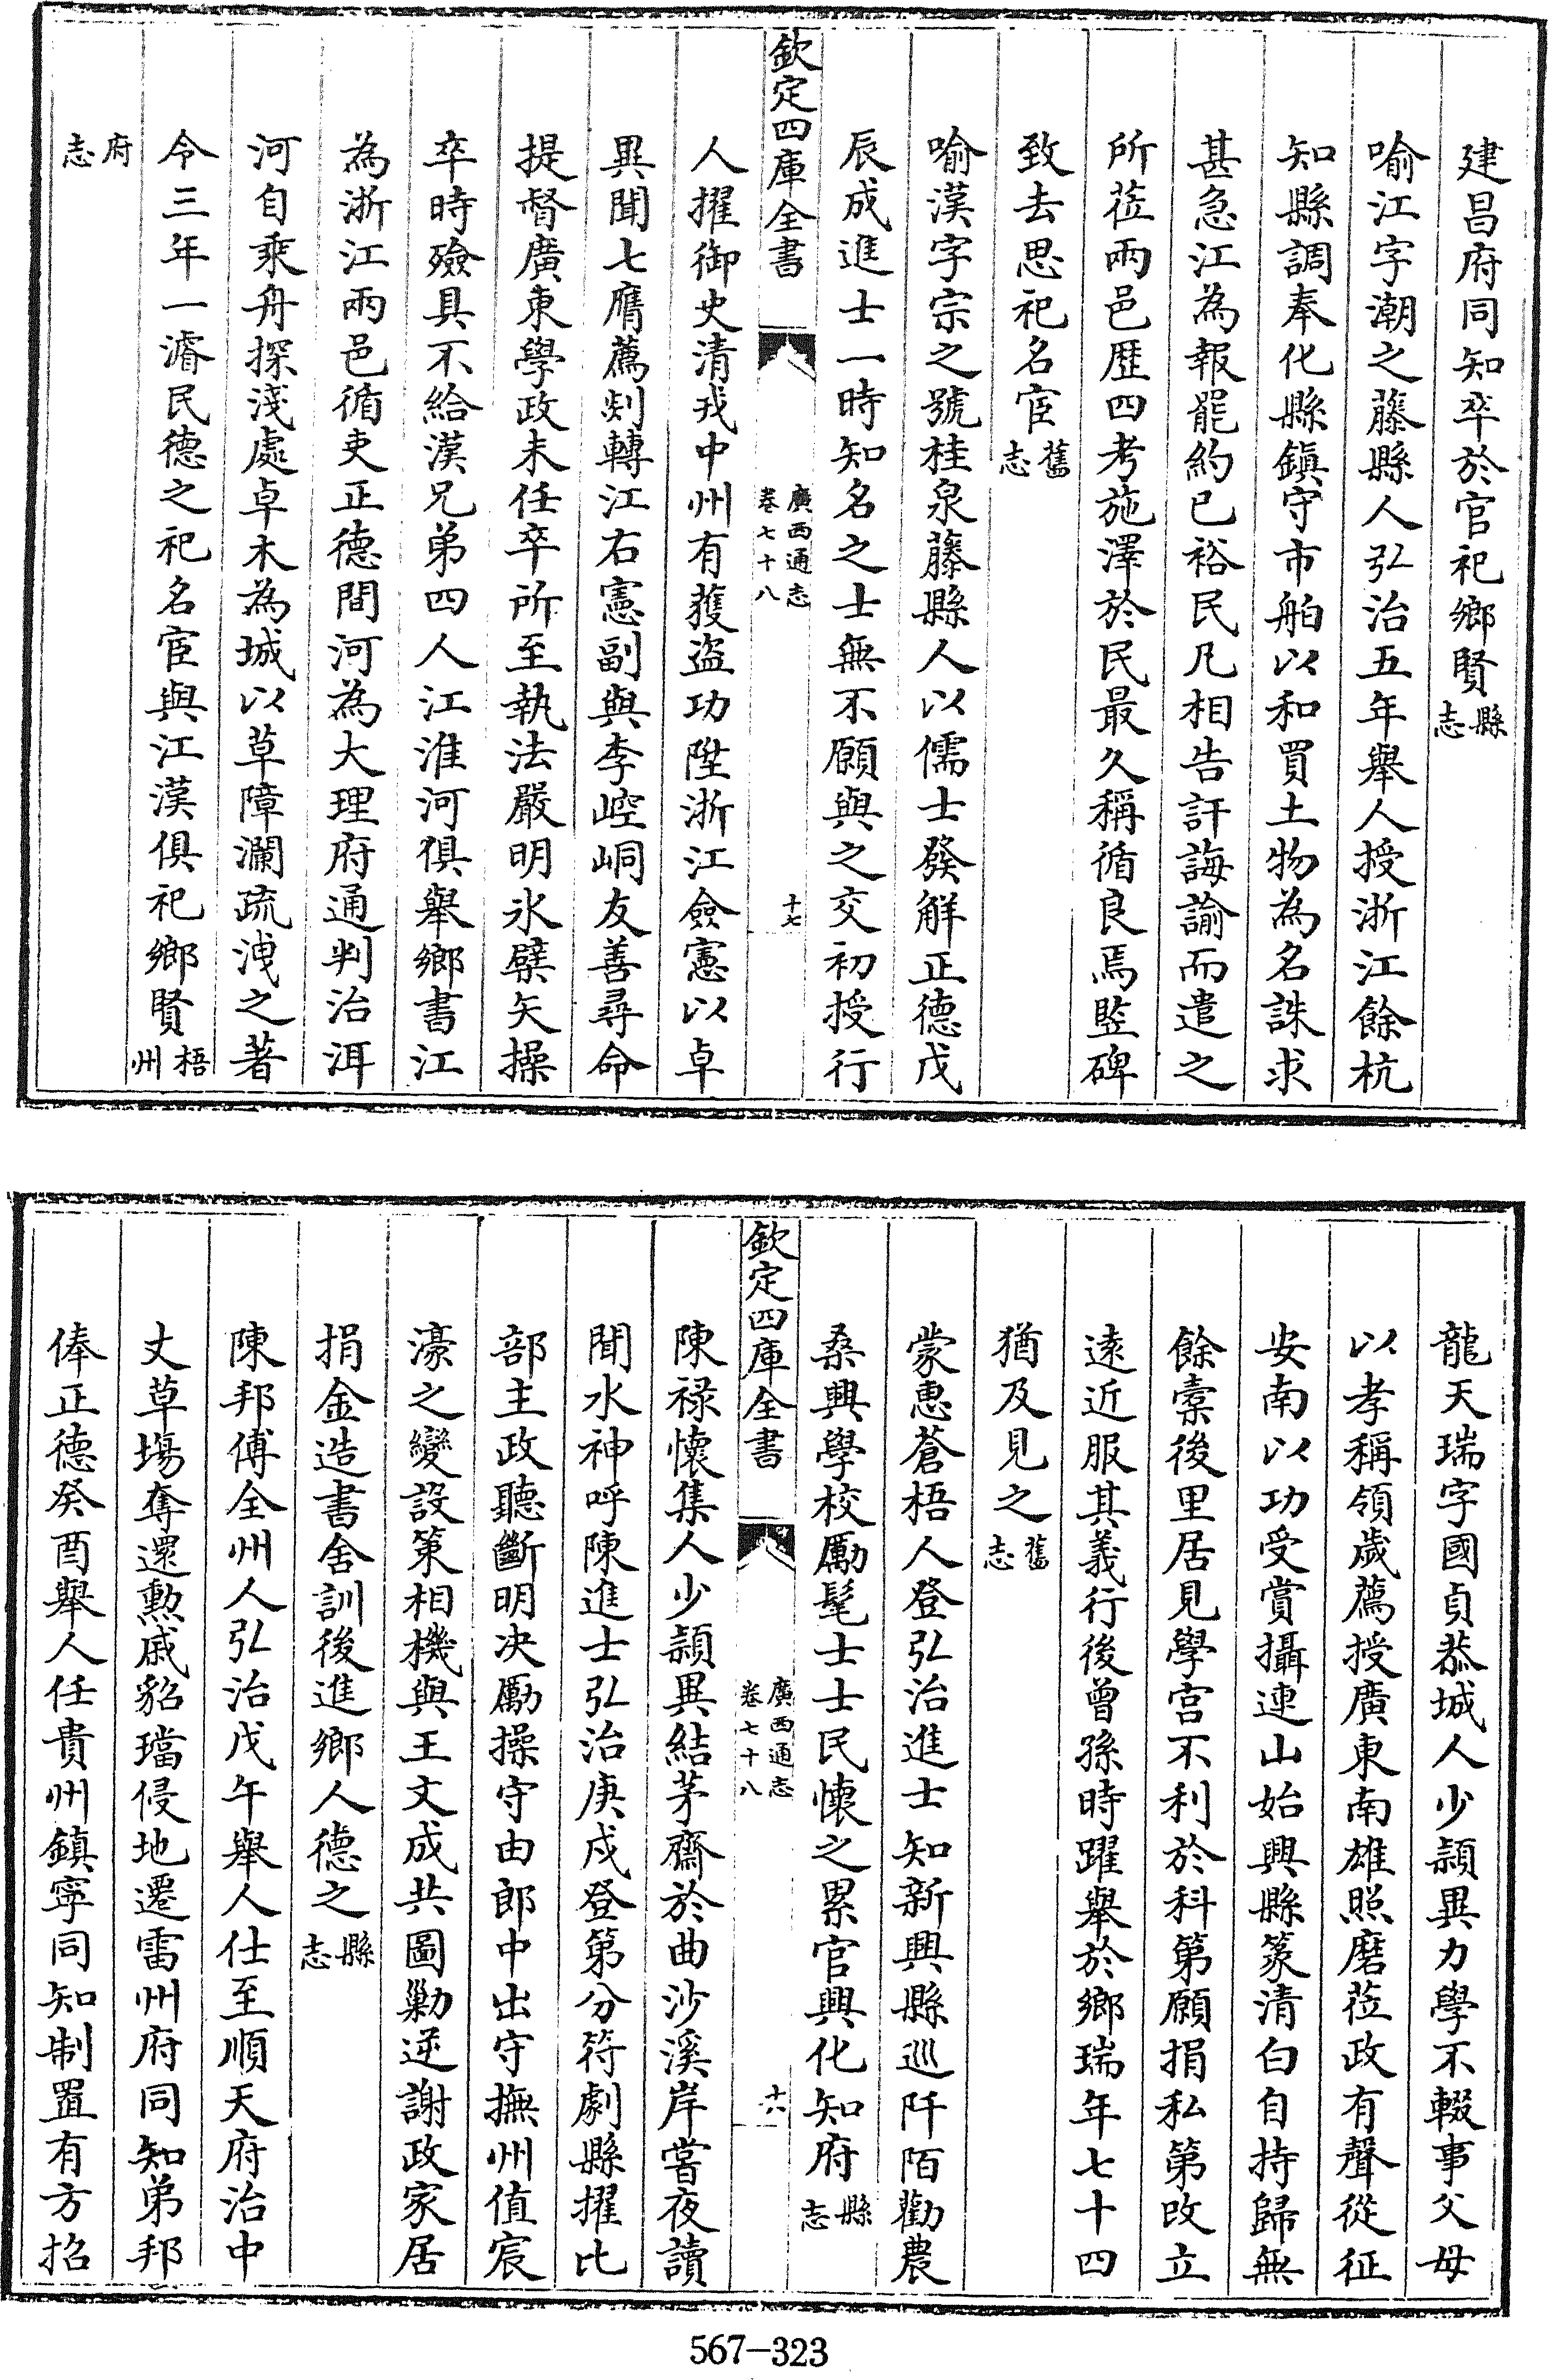 建昌府同知卒於官祀鄉賢縣志
喻江字潮之藤縣人弘治五年舉人授浙江餘杭
知縣調奉化縣鎮守市舶以和買土物為名誅求
甚急江為報罷約已裕民凡相告訐誨諭而遣之
所莅兩邑歴四考施澤於民最久稱循良焉監碑
致去思祀名宦舊志
喻漢字宗之號桂泉藤縣人以儒士發解正德戊
辰成進士一時知名之士無不願與之交初授行
欽定四庫全書
廣西通志
卷七十八
十七
人擢御史清戎中州有獲盗功陞浙江僉憲以卓
異聞七膺薦剡轉江右憲副與李崆峒友善尋命
提督廣東學政未任卒所至執法嚴明氷櫱矢操
卒時殮具不給漢兄弟四人江淮河俱舉鄉書江
為浙江兩邑循吏正德間河為大理府通判治洱
河自乘舟探淺處卓木為城以草障瀾疏洩之著
令三年一濬民德之祀名宦與江漢俱祀鄉賢梧州
府志
龍天瑞字國貞恭城人少頴異力學不輟事父母
以孝稱領歲薦授廣東南雄照磨莅政有聲從征
安南以功受賞攝連山始興縣篆清白自持歸無
餘橐後里居見學宫不利於科第願捐私第改立
逺近服其義行後曾孫時躍舉於鄉瑞年七十四
猶及見之舊志
蒙惠蒼梧人登弘治進士知新興縣巡阡陌勸農
桑興學校勵髦士士民懷之累官興化知府縣志
欽定四庫全書
廣西通志
卷七十八
十八
陳禄懷集人少頴異結茅齋於曲沙溪岸嘗夜讀
聞水神呼陳進士弘治庚戍登第分符劇縣擢比
部主政聽斷明决勵操守由郎中出守撫州值宸
濠之變設策相機與王文成共圖勦逆謝政家居
捐金造書舍訓後進鄉人德之縣志
陳邦傅全州人弘治戊午舉人仕至順天府治中
丈草塲奪還勲戚貂璫侵地遷雷州府同知弟邦
俸正德癸酉舉人任貴州鎮寧同知制置有方招
567-323